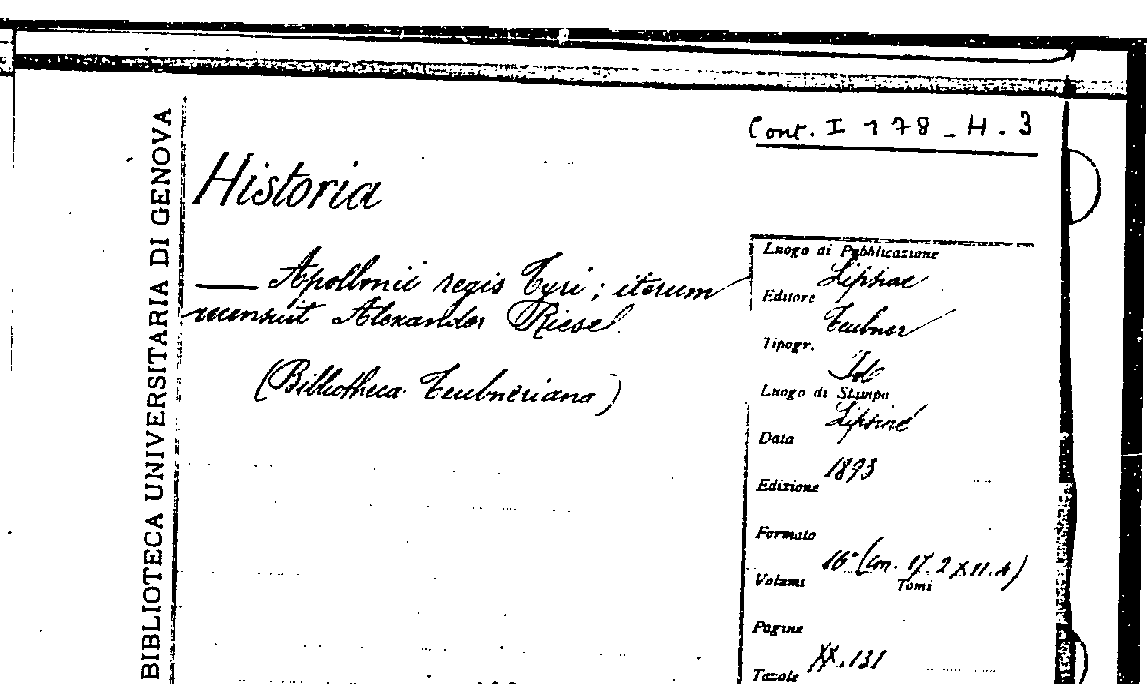 Cont. I 178_H.3
BIBLIOTECA UNIVERSITARIA DI GENOVA
Historia
— Apollonii regis Tyri; iterum
recensuit Alexander Riese
(Bibliotheca Teubneriana)
Luogo di Pubblicazione
Lipsiae
Editore
Teubner
Tipogr.
Id.
Luogo di Stampa
Lipsiae
Data
1893
Edizione
Formato
16° (cm. 17.2 X 11.4)
Volumi Tomi
Pagine
XX.131
Tavole